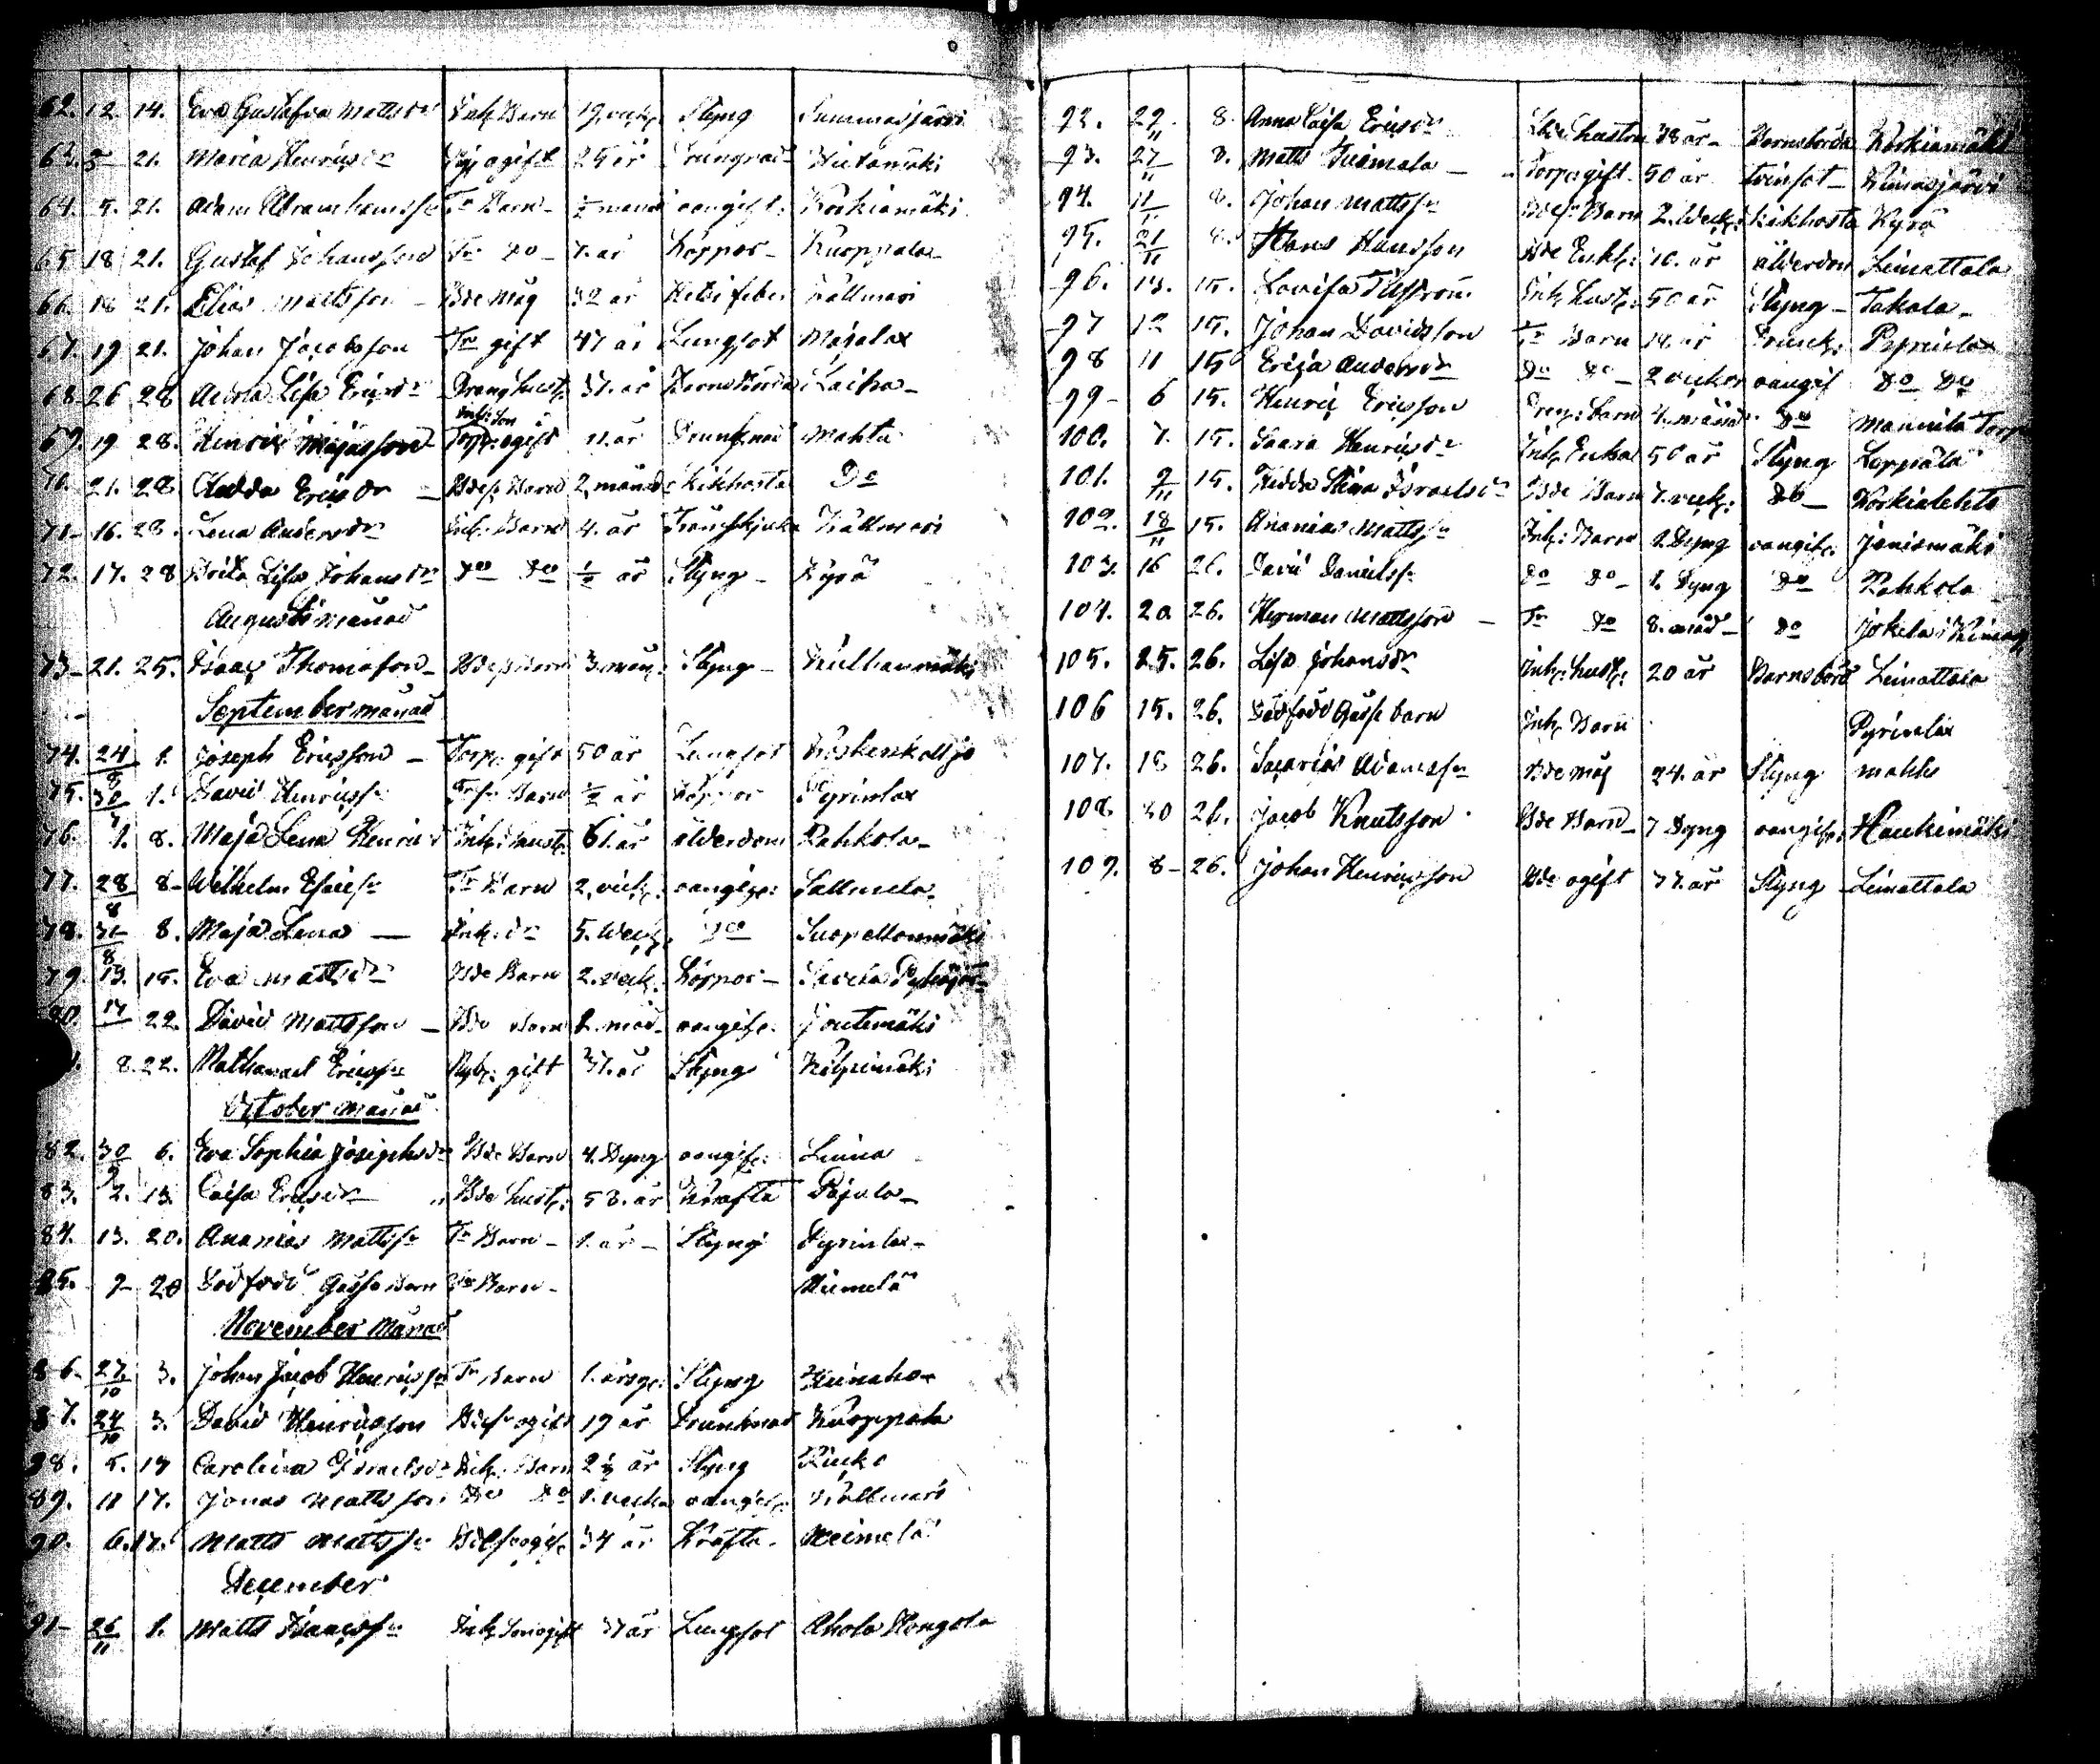 62. 12. 14. Eva Gustafva Mattsdr Inh. Barn 19 veck. Styng Summasjärvi
63. 21. Maria Henricsdr ogift 25 år Hietamäki
64. 9. 21. Adam Abramhamss: Barn månd oangift: Korkiamäki
65 18 21. Gustaf Johansson Do 7. år Koppor Kuoppala
66. 18 21. Elias Mattsson Bde måg 32 år Hetsi feber Källmari
67. 19 21. Johan Jacobsson gift 47 år Lungsot Majala
68. 26 28 Lisa Ericsdr Dreng hust: 37. år Barnsbörd Laiha
69. 19 28. Henric Majasson Inh: Son ogift 11. år Drunknad Mahta
70. 21. 28 Hedda Ericsdr Bdes Barn 2 månd: Kikhosta Do
71. 16. 28. Lena Andersdr Inh: Barn 4. år Källmari
72. 17. 28 Brita Lisa Johansdr Do Do 1/2 år Styng Kyrö
Augusti månad
73. 21. 25. Isaac Thomasson Bdes Barn 3. mån: Styng Kulhanmäki
September månad
74. 24/8 1. Joseph Ericsson Torp. gift 50 år Lungsot Koskenkallio
75. 30/7 1. David Henricss: Barn 1/2 år Koppor Pyrinla
76. 1. 8. Maja Lena Inh: hust: 61. år ålderdom Rahkola
77. 28/8 8 Wilhelm Barn 2. veck. oangif: Sallmela
78. 31/8 8. Maja Lena Inh: dr 5. Weck. Do
79. 13. 15. Eva Mattsdr Bde Barn 2. veck. Koppor
80. 14 22. David Mattsson Bde Barn 2. mån oangif: Joutemäki
8. 22. Nathanael Ericss: Nyb: gift 37. år Styng Kilpimäki
October månad
82. 30/9 6. Eva Sophia Josephsdr Bde Barn 4. Dyng oangif: Linna
83. 2. 13. Caisa Ericsdr Bde hust: 58. år Kräfta Pajula
84. 13. 20. Ananias Mattss: Barn 1. år Styng Pyrinla
85. 9 20 Dödfödt Gosse Barn Barn Niemelä
November månad
86. 27/10 3. Johan Jacob Henricss: Barn 1. årsg: Styng Heinaho
87. 24/10 3. David Henricsson ogift 19 år Drunknad Kuoppala
88. 5. 17 Carolina Israelsdr Inh: Barn 2 1/2 år Styng
89. 11 17. Jonas Mattsson Do Do 1. vecka oangif: Källmari
90. 6. 17. Matts Mattss: ogif: 34 år Kräfta Neimelä
December
91 26/11 1. Matts Isaacss: Inh: Son ogift 37 år Lungsot Ahola Kongola
92. 29/11 8. Anna Caisa Ericsdr hustru 38 år Barnsbörd Korkiamäki
93. 27/11 8. Matts Tuomala Torpar gift 50 år tvinsot Kuinasjärvi
94. 11/11 8. Johan Mattss: Bdes Barn 2. Weck: Kikhosta Kyrö
95. 21/11 8. Hans Hansson Bde Enkl: 70. år ålderdom Leinattala
96. 13. 15. Lovisa Inh. hust: 50 år Styng Takala
97 12 15. Johan Davidsson Barn 12. år Pyrinla
98 11 15 Erica Andersdr Do Do 2 veckor oangif Do Do
99 6 15. Henric Ericsson Dreng: barn 4. månad Do Mannila Torp
100. 7. 15. Saara Henricsdr Inh. Enka 50 år Styng Leppälä
101. 9/11 15. Hedda Stina Israelsdr Bde Barn 7. veck: Do Korkialehto
102. 18/11 15. Ananias Mattss: Inh: Barn 2 Dyng oangif: Jäniemäki
103. 16 26. David Danielss: Do Do 1. Dyng Do Rahkola
104. 20. 26. Herman Mattsson Do 8. mån Do Jokela
105. 25. 26. Lisa Johansdr Inh: hust: 20 år Barnsbörd Leinattala
106 15. 26. Dödfödd Gosse barn Inh. Barn Pyrinla
107. 18 26. Sacarias Adamss: Bde måg 24. år Styng Mahta
108 20 26. Jacob Knutsson Bde Barn 7 Dyng oangif: Haukimäki
109. 8 26. Johan Henricsson Bde ogift 77. år Styng Leinattala